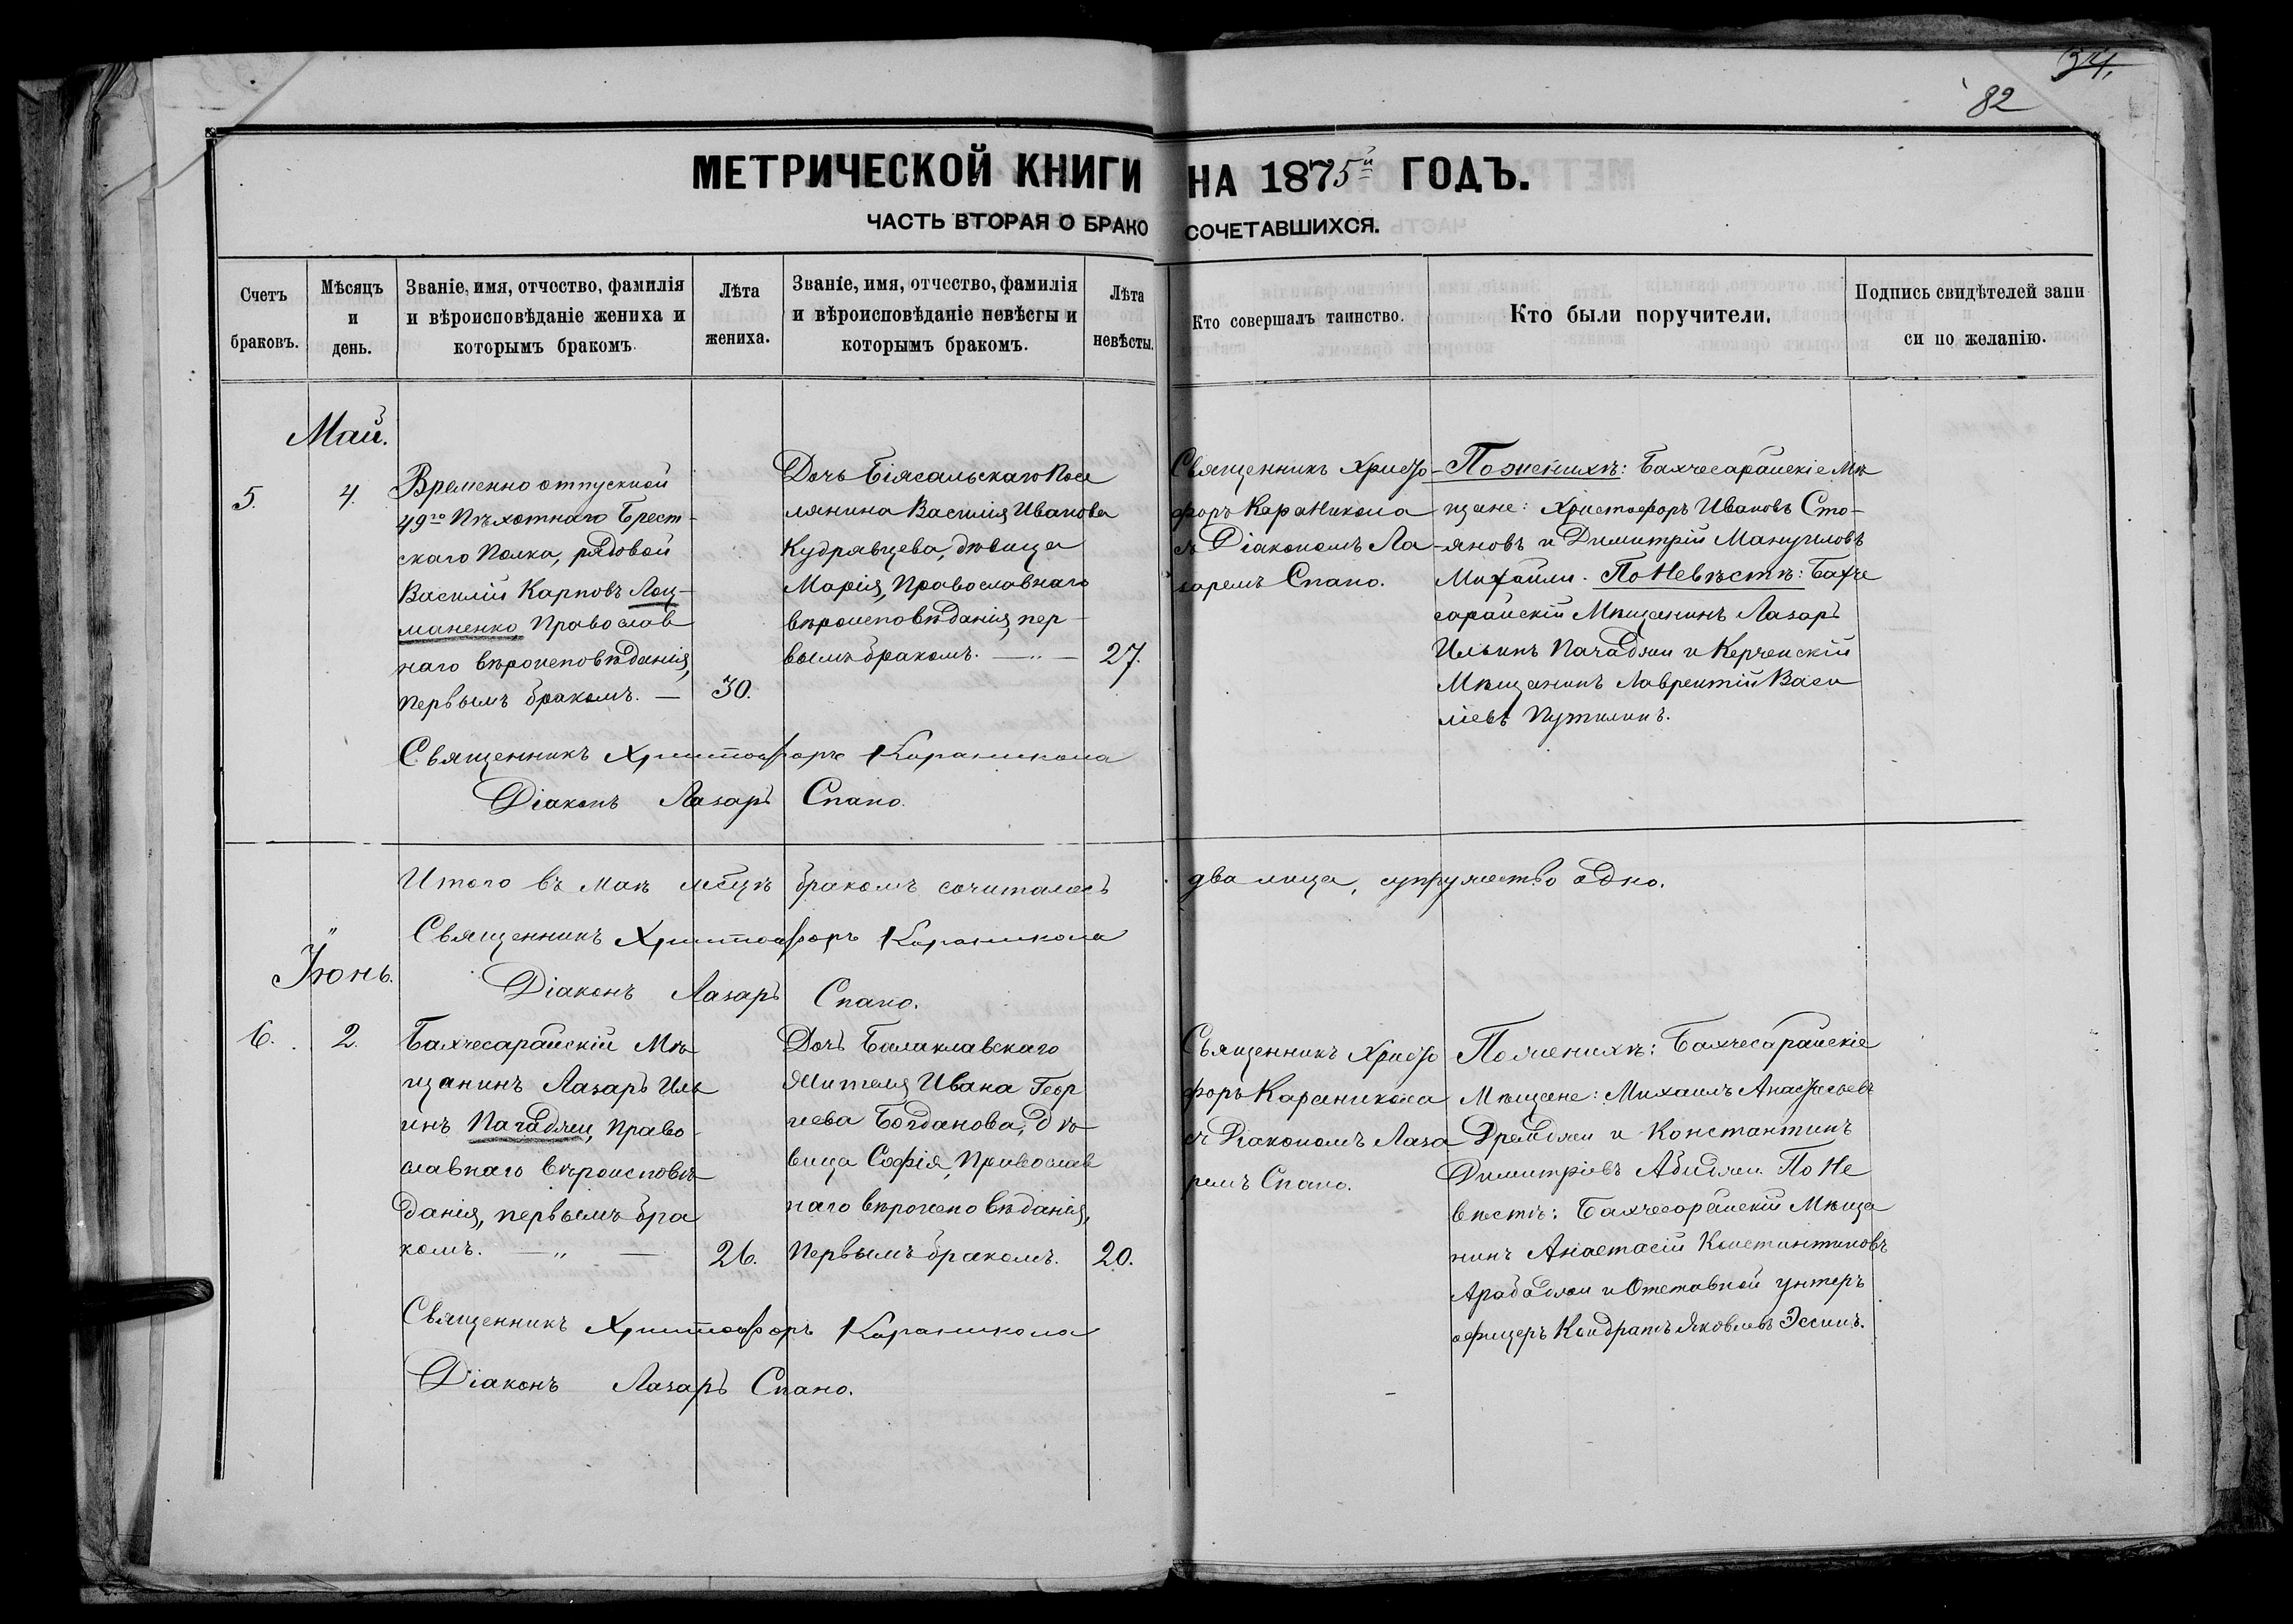 34,
82
МЕТРИЧЕСКОЙ КНИГИ НА 1875й ГОДЪ.
ЧАСТЬ ВТОРАЯ О БРАКОСОЧЕТАВШИХСЯ.
Счетъ браковъ.
Мѣсяцъ и день.
Званіе, имя, отчество, фамилія
и вѣроисповѣданіе жениха и
которымъ бракомъ.
Лѣта жениха.
Званіе, имя, отчество, фамилія
и вѣроисповѣданіе невѣсты и
которымъ бракомъ.
Лѣта невѣсты.
Кто совершалъ таинство.
Кто были поручители.
Подпись свидѣтелей запи
си по желанію.
Май.
5.
4.
Временно отпускной
49го Пѣхотнаго Брест-
скаго Полка, рядовой
Василій Карповъ Лоц-
маненко, Православ
наго вѣроисповѣданія,
первымъ бракомъ. —
30.
Дочь Біясальскаго Посе
лянина Василія Иванова
Кудрявцева, дѣвица
Марія, Православнаго
вѣроисповѣданія, пер-
вымъ бракомъ. — „ —
27.
Священникъ Христо-
форъ Караникола
съ Діакономъ Ла-
заремъ Спано.
По женихѣ: Бахчесарайскіе Мѣ
щане: Христофоръ Ивановъ Сто-
яновъ и Димитрій Мануиловъ
Михайли. По Невѣстѣ: Бахче
сарайскій Мѣщанинъ Лазарь
Ильинъ Пачаджи и Керченскій
Мѣщанинъ Лаврентій Васи
ліевъ Путилинъ.
Священникъ Христофоръ Караникола
Діаконъ Лазарь Спано.
Итого въ Маѣ мѣсцѣ бракомъ сочиталось два лица, супружество одно.
Священникъ Христофоръ Караникола
Діаконъ Лазарь Спано.
Іюнь.
6.
2.
Бахчесарайскій Мѣ
щанинъ Лазарь Иль
инъ Пачаджи, Право-
славнаго вѣроисповѣ
данія, первымъ бра
комъ. — „ —
26.
Дочь Балаклавскаго
Жителя Ивана Геор
гіева Богданова, дѣ-
вица Софія, Православ
наго вѣроисповѣданія,
первымъ бракомъ.
20.
Священникъ Христо
форъ Караникола
съ Діакономъ Лаза
ремъ Спано.
По женихѣ: Бахчесарайскіе
Мѣщане: Михаилъ Анастасьевъ
и Константинъ
Димитріевъ Абаджи. По Не
вѣстѣ: Бахчесарайскій Мѣща
нинъ Анастасій Константиновъ
Арабаджи и Отставной унтеръ
офицеръ Кондратъ Яковлевъ Эссинъ.
Священникъ Христофоръ Караникола
Діаконъ Лазарь Спано.